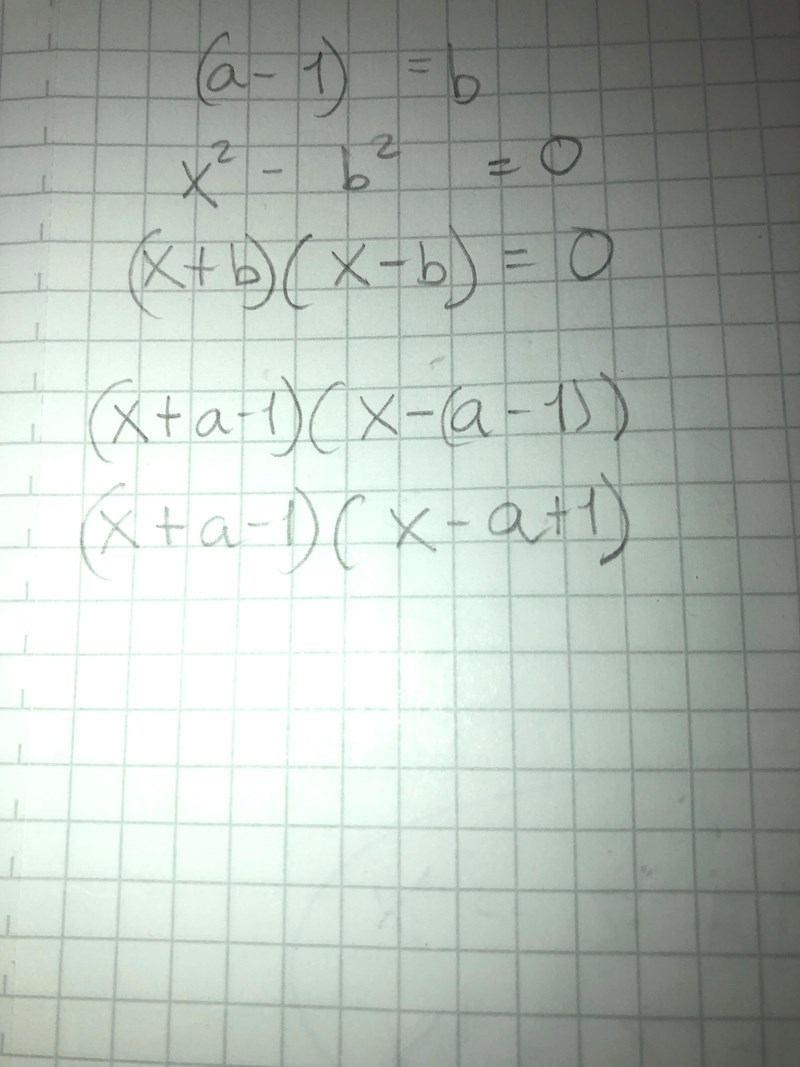 (a-1) = b
x² - b² = 0
(x+b)(x-b) = 0
(x+a-1)(x-(a-1))
(x+a-1)(x-a+1)